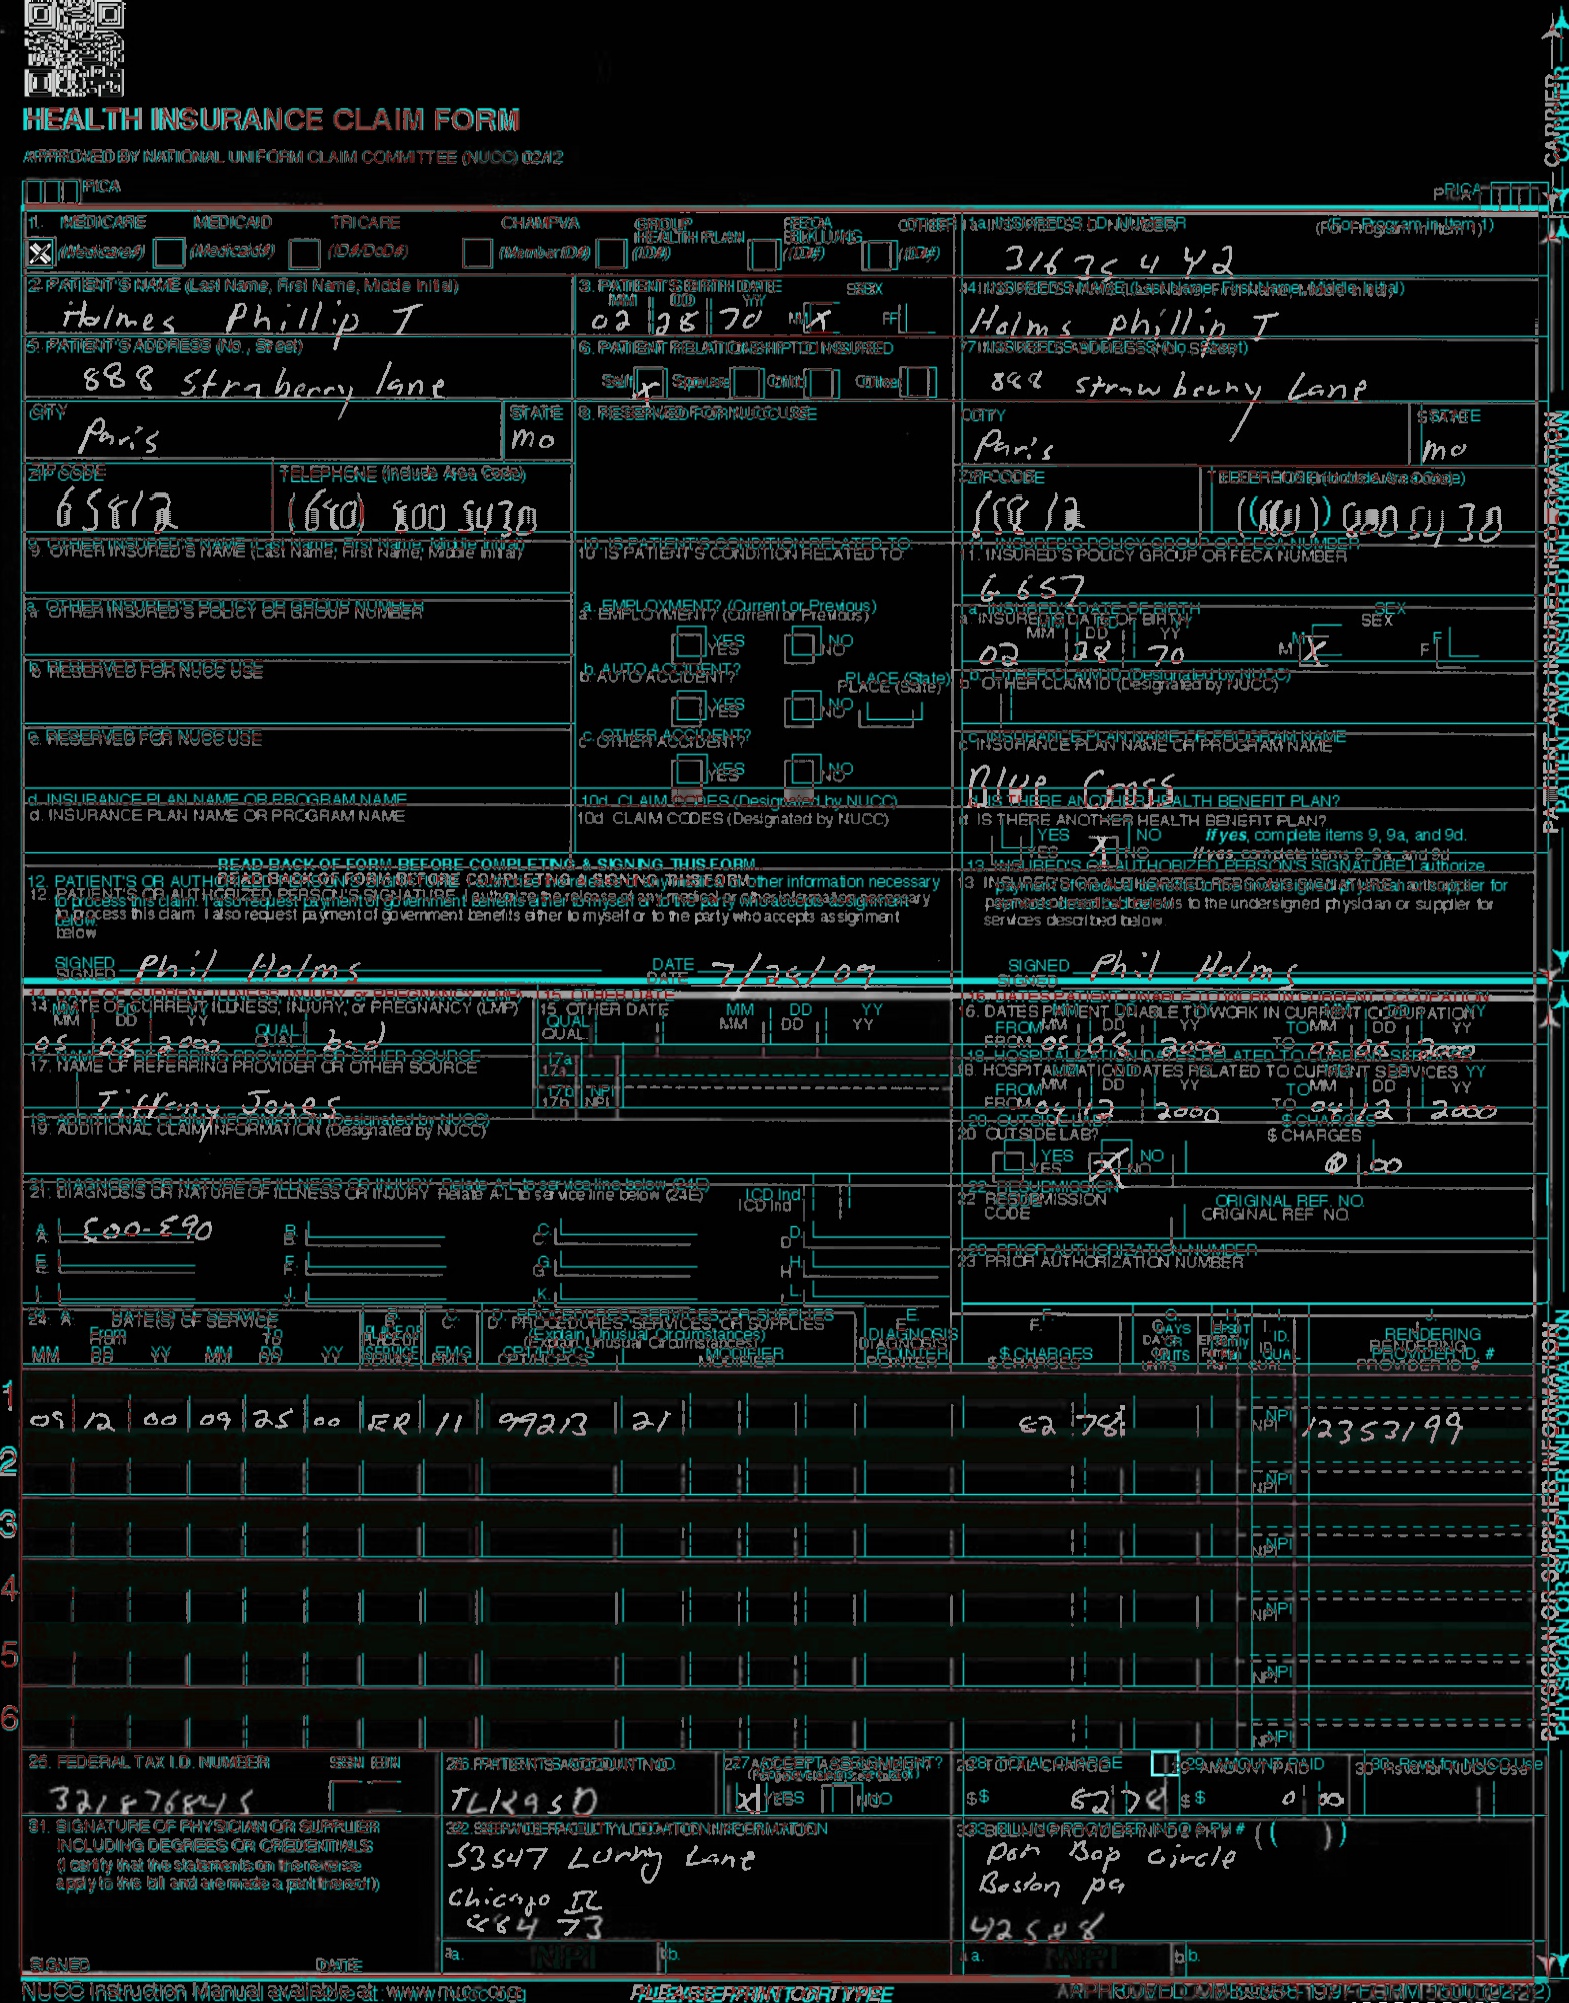 HEALTH INSURANCE CLAIM FORM
APPROVED BY NATIONAL UNIFORM CLAIM COMMITTEE (NUCC) 02/12
PICA PICA
CARRIER
1. MEDICARE MEDICAID TRICARE CHAMPVA GROUP HEALTH PLAN FECA BLK LUNG OTHER
(Medicare#) (Medicaid#) (ID#/DoD#) (Member ID#) (ID#) (ID#) (ID#)
1a. INSURED'S I.D. NUMBER (For Program in Item 1)
2. PATIENT'S NAME (Last Name, First Name, Middle Initial)
Holmes Phillip T
3. PATIENT'S BIRTH DATE SEX
MM DD YY
02 28 70 M X F
4. INSURED'S NAME (Last Name, First Name, Middle Initial)
Holms phillip T
5. PATIENT'S ADDRESS (No., Street)
888 Strnberry lane
6. PATIENT RELATIONSHIP TO INSURED
Self X Spouse Child Other
7. INSURED'S ADDRESS (No., Street)
888 strawberry Lane
CITY Paris
STATE mo
8. RESERVED FOR NUCC USE
CITY Paris
STATE mo
ZIP CODE 65812
TELEPHONE (Include Area Code)
800 5430
ZIP CODE
TELEPHONE (Include Area Code)
800 5430
9. OTHER INSURED'S NAME (Last Name, First Name, Middle Initial)
10. IS PATIENT'S CONDITION RELATED TO:
11. INSURED'S POLICY GROUP OR FECA NUMBER
6657
a. OTHER INSURED'S POLICY OR GROUP NUMBER
a. EMPLOYMENT? (Current or Previous)
YES NO
a. INSURED'S DATE OF BIRTH SEX
MM DD YY
02 28 70 M X F
b. RESERVED FOR NUCC USE
b. AUTO ACCIDENT? PLACE (State)
YES NO
b. OTHER CLAIM ID (Designated by NUCC)
c. RESERVED FOR NUCC USE
c. OTHER ACCIDENT?
YES NO
c. INSURANCE PLAN NAME OR PROGRAM NAME
Blue Cross
d. INSURANCE PLAN NAME OR PROGRAM NAME
10d. CLAIM CODES (Designated by NUCC)
d. IS THERE ANOTHER HEALTH BENEFIT PLAN?
YES X NO If yes, complete items 9, 9a, and 9d.
READ BACK OF FORM BEFORE COMPLETING & SIGNING THIS FORM.
12. PATIENT'S OR AUTHORIZED PERSON'S SIGNATURE I authorize the release of any medical or other information necessary
to process this claim. I also request payment of government benefits either to myself or to the party who accepts assignment
below.
SIGNED Phil Holms DATE 7/25/09
13. INSURED'S OR AUTHORIZED PERSON'S SIGNATURE I authorize
payment of medical benefits to the undersigned physician or supplier for
services described below.
SIGNED Phil Holms
PATIENT AND INSURED INFORMATION
14. DATE OF CURRENT ILLNESS, INJURY, or PREGNANCY (LMP)
MM DD YY
05 08 2000 QUAL. bad
15. OTHER DATE
QUAL. MM DD YY
16. DATES PATIENT UNABLE TO WORK IN CURRENT OCCUPATION
MM DD YY MM DD YY
FROM 2000 TO 2000
17. NAME OF REFERRING PROVIDER OR OTHER SOURCE
Tiffany Jones
17a.
17b. NPI
18. HOSPITALIZATION DATES RELATED TO CURRENT SERVICES
MM DD YY MM DD YY
FROM 04 12 2000 TO 04 12 2000
19. ADDITIONAL CLAIM INFORMATION (Designated by NUCC)
20. OUTSIDE LAB? $ CHARGES
YES X NO 0 00
21. DIAGNOSIS OR NATURE OF ILLNESS OR INJURY Relate A-L to service line below (24E) ICD Ind.
A. 500-590 B. C. D.
E. F. G. H.
I. J. K. L.
22. RESUBMISSION CODE ORIGINAL REF. NO.
23. PRIOR AUTHORIZATION NUMBER
24. A. DATE(S) OF SERVICE B. PLACE OF SERVICE C. EMG D. PROCEDURES, SERVICES, OR SUPPLIES E. DIAGNOSIS POINTER F. $ CHARGES G. DAYS OR UNITS H. EPSDT I. ID. QUAL. J. RENDERING PROVIDER ID. #
From To (Explain Unusual Circumstances)
MM DD YY MM DD YY CPT/HCPCS MODIFIER
1 09 12 00 09 25 00 ER 11 99213 21 62 78 NPI 12353199
2 NPI
3 NPI
4 NPI
5 NPI
6 NPI
25. FEDERAL TAX I.D. NUMBER SSN EIN
321876845
26. PATIENT'S ACCOUNT NO.
27. ACCEPT ASSIGNMENT?
X YES NO
28. TOTAL CHARGE
$ 62 78
29. AMOUNT PAID
$ 0 00
30. Rsvd for NUCC Use
31. SIGNATURE OF PHYSICIAN OR SUPPLIER
INCLUDING DEGREES OR CREDENTIALS
(I certify that the statements on the reverse
apply to this bill and are made a part thereof.)
SIGNED DATE
32. SERVICE FACILITY LOCATION INFORMATION
53547 Lurry Lane
Chicago IL
a. NPI b.
33. BILLING PROVIDER INFO & PH # ( )
Bop circle
Boston pa
42588
a. NPI b.
PHYSICIAN OR SUPPLIER INFORMATION
NUCC Instruction Manual available at: www.nucc.org
PLEASE PRINT OR TYPE